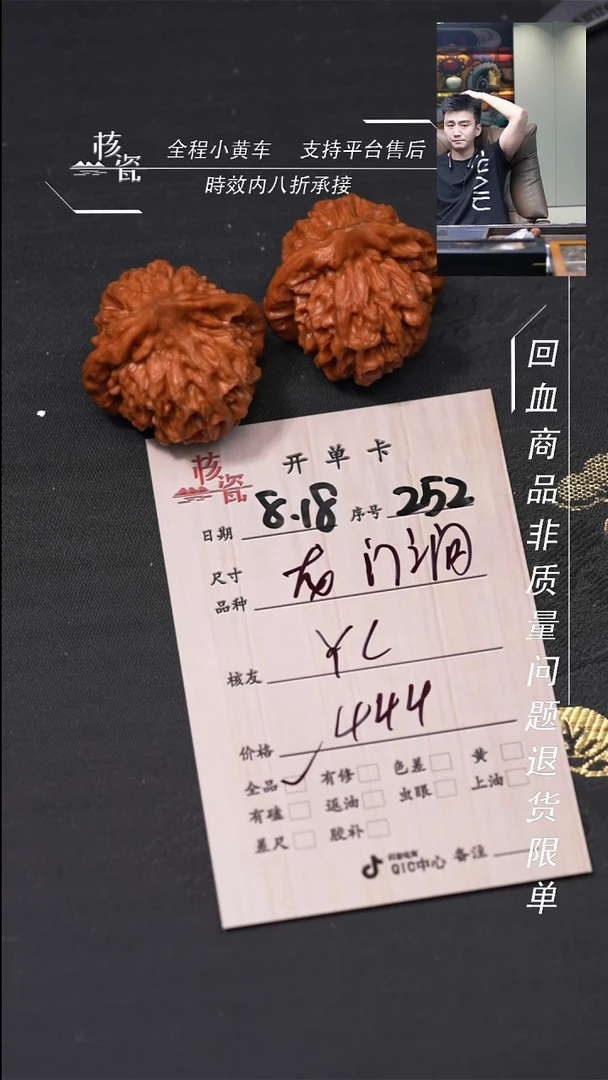 核瓷
全程小黄车 支持平台售后
時效内八折承接
回血商品非质量问题退货限单
核瓷
开单卡
日期 8.18 序号 252
尺寸
品种 龙门涧
核友 YL
价格 444
全品 ✓ 有修 色差 黄
有磕 返油 虫眼 上油
差尺 胶补
抖音电商
QIC中心 备注